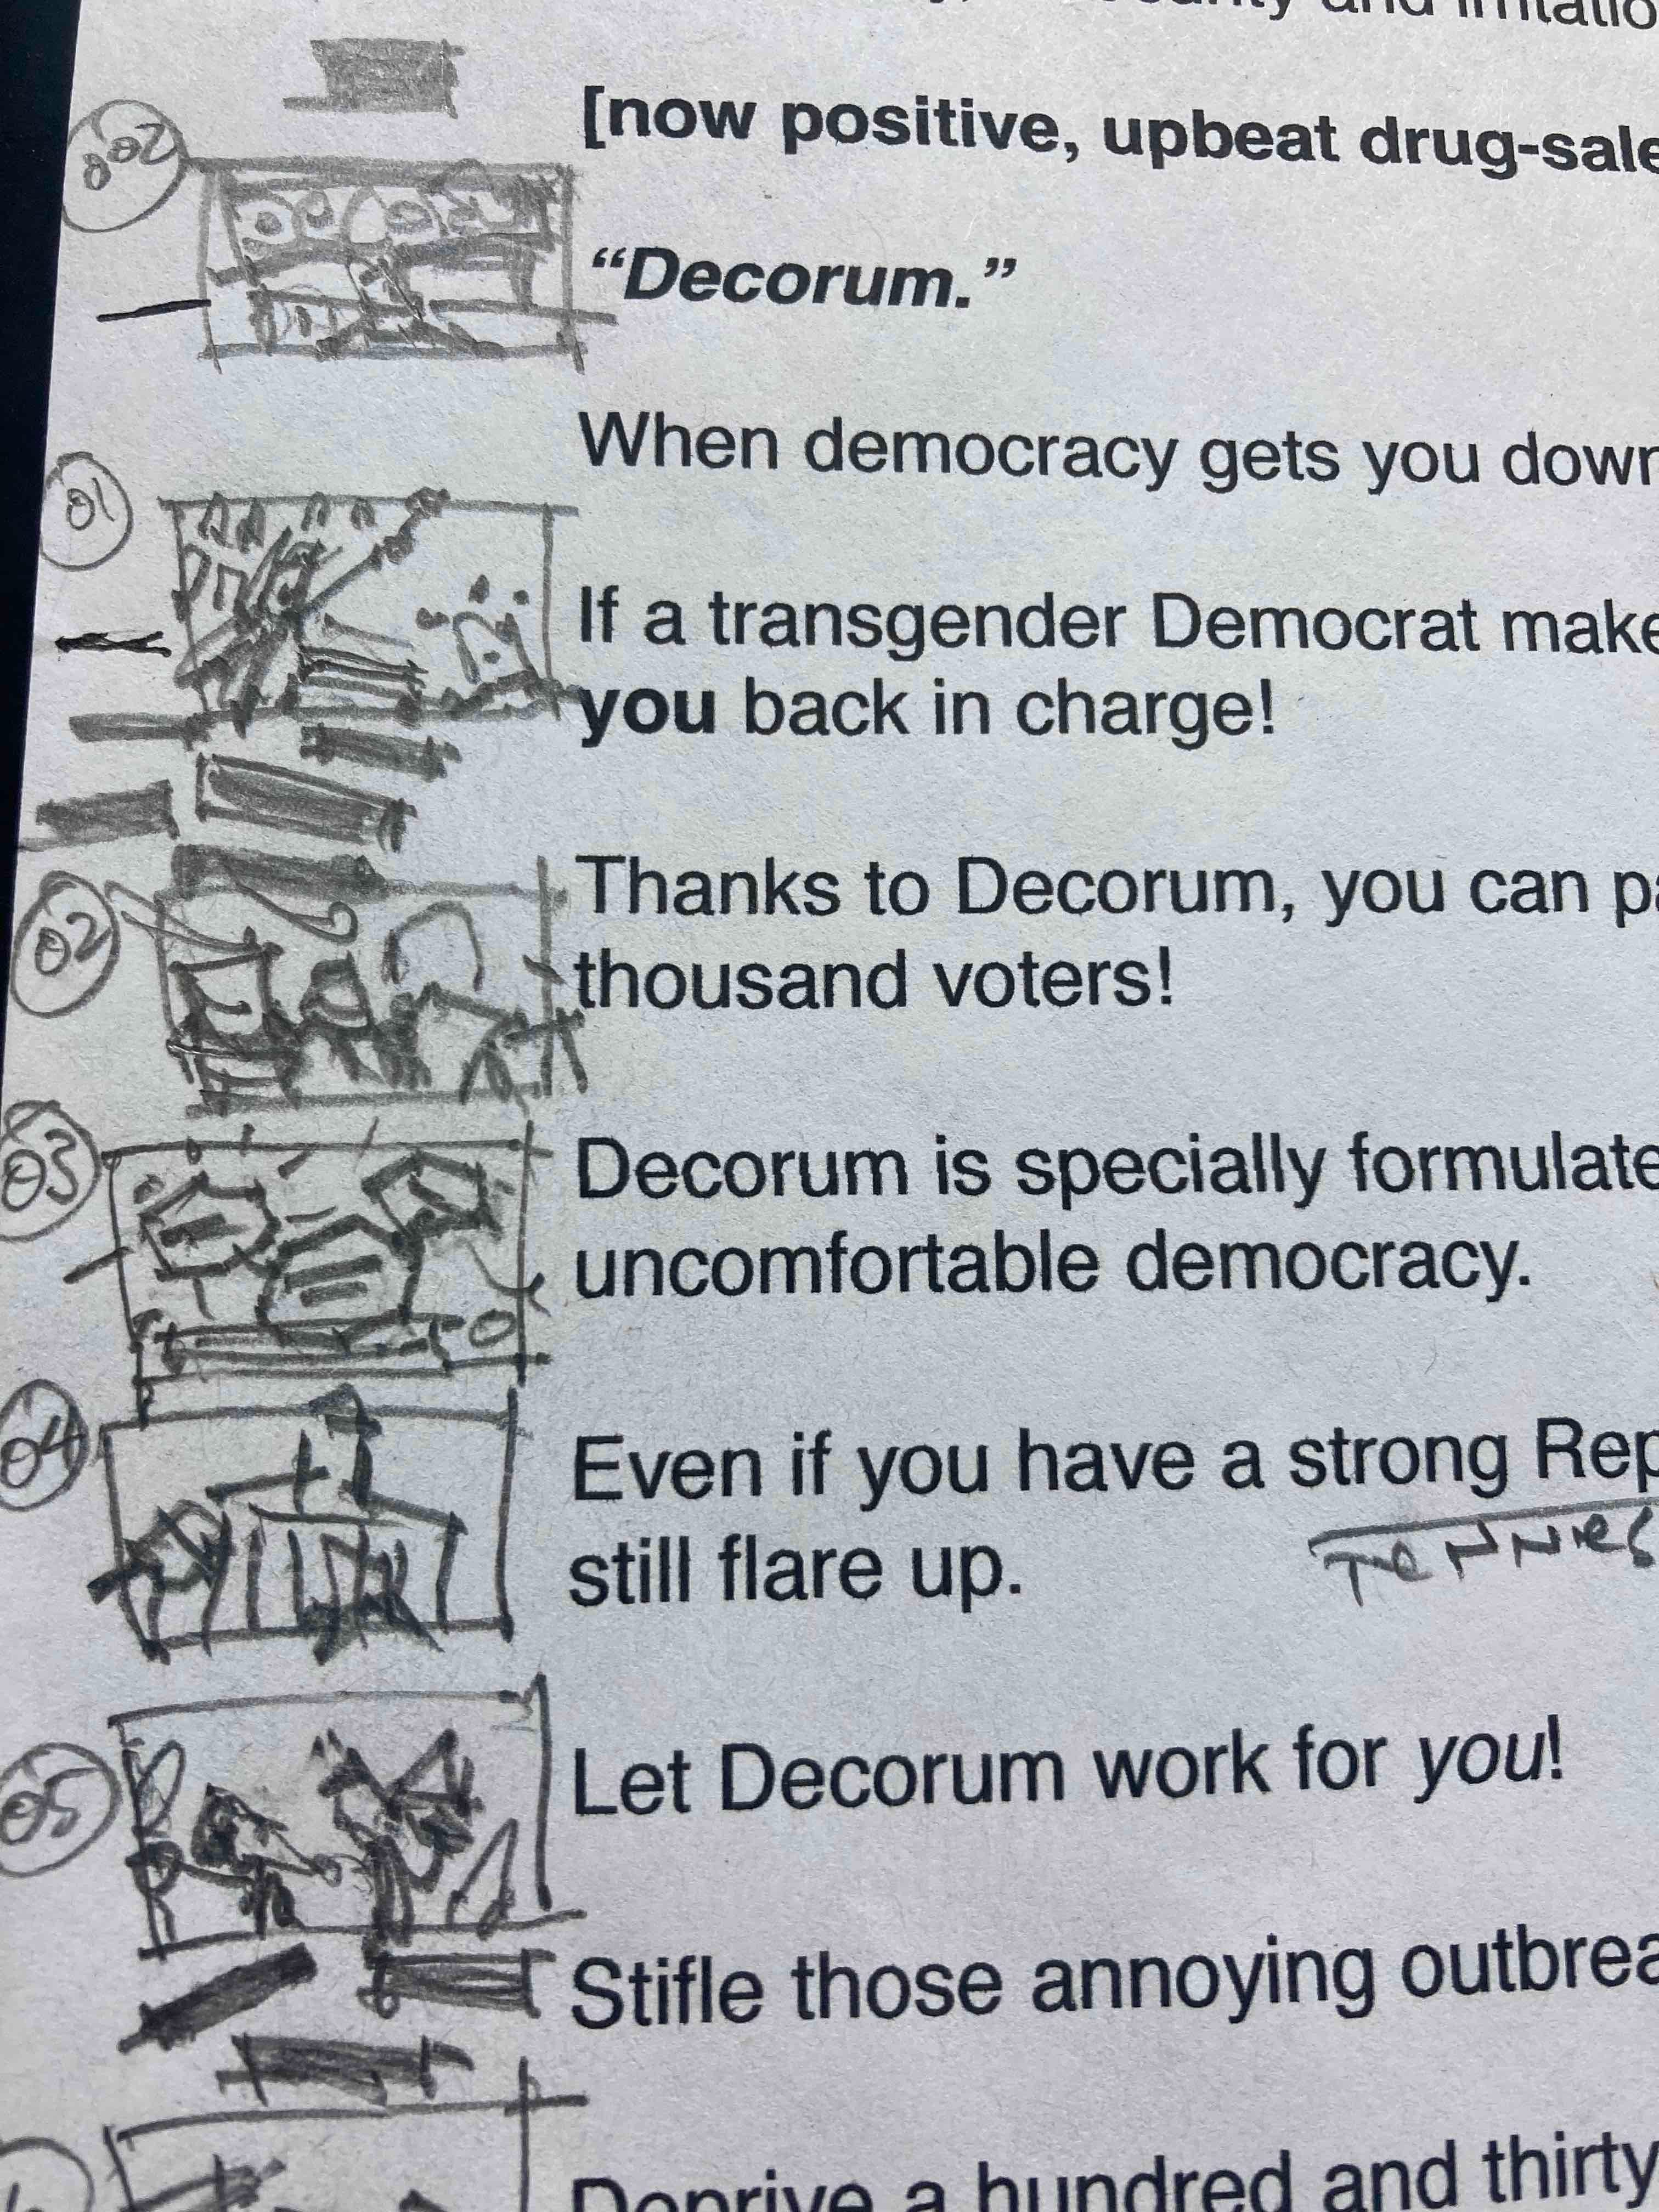 and
[now positive, upbeat drug-sale
"Decorum."
When democracy gets you down
01
If a transgender Democrat make
you back in charge!
02
Thanks to Decorum, you can pa
thousand voters!
03
Decorum is specially formulate
uncomfortable democracy.
04
Even if you have a strong Rep
still flare up.
05
Let Decorum work for you!
Stifle those annoying outbrea
Deprive a hundred and thirty